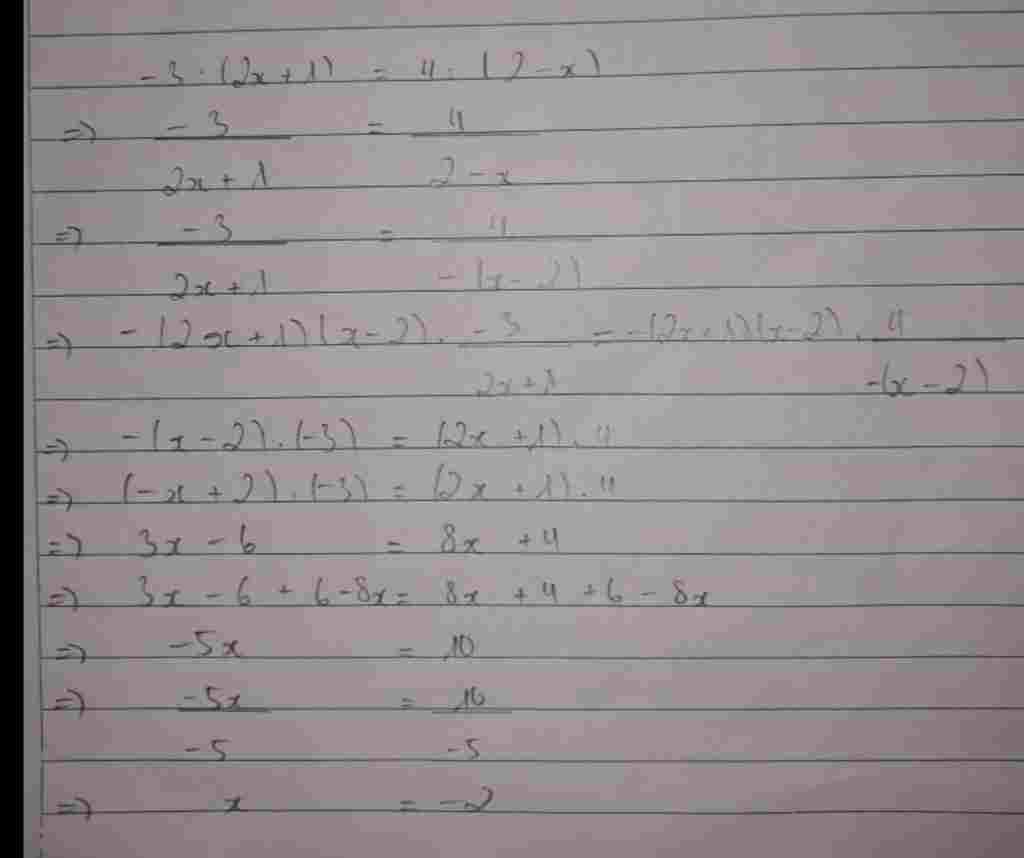 -3 . (2x + 1) = 4 . (2 - x)
=> -3 / 2x + 1 = 4 / 2 - x
=> -3 / 2x + 1 = 4 / -(x - 2)
=> -(2x + 1)(x - 2) . -3 / 2x + 1 = -(2x + 1)(x - 2) . 4 / -(x - 2)
=> -(x - 2) . (-3) = (2x + 1) . 4
=> (-x + 2) . (-3) = (2x + 1) . 4
=> 3x - 6 = 8x + 4
=> 3x - 6 + 6 - 8x = 8x + 4 + 6 - 8x
=> -5x = 10
=> -5x / -5 = 10 / -5
=> x = -2